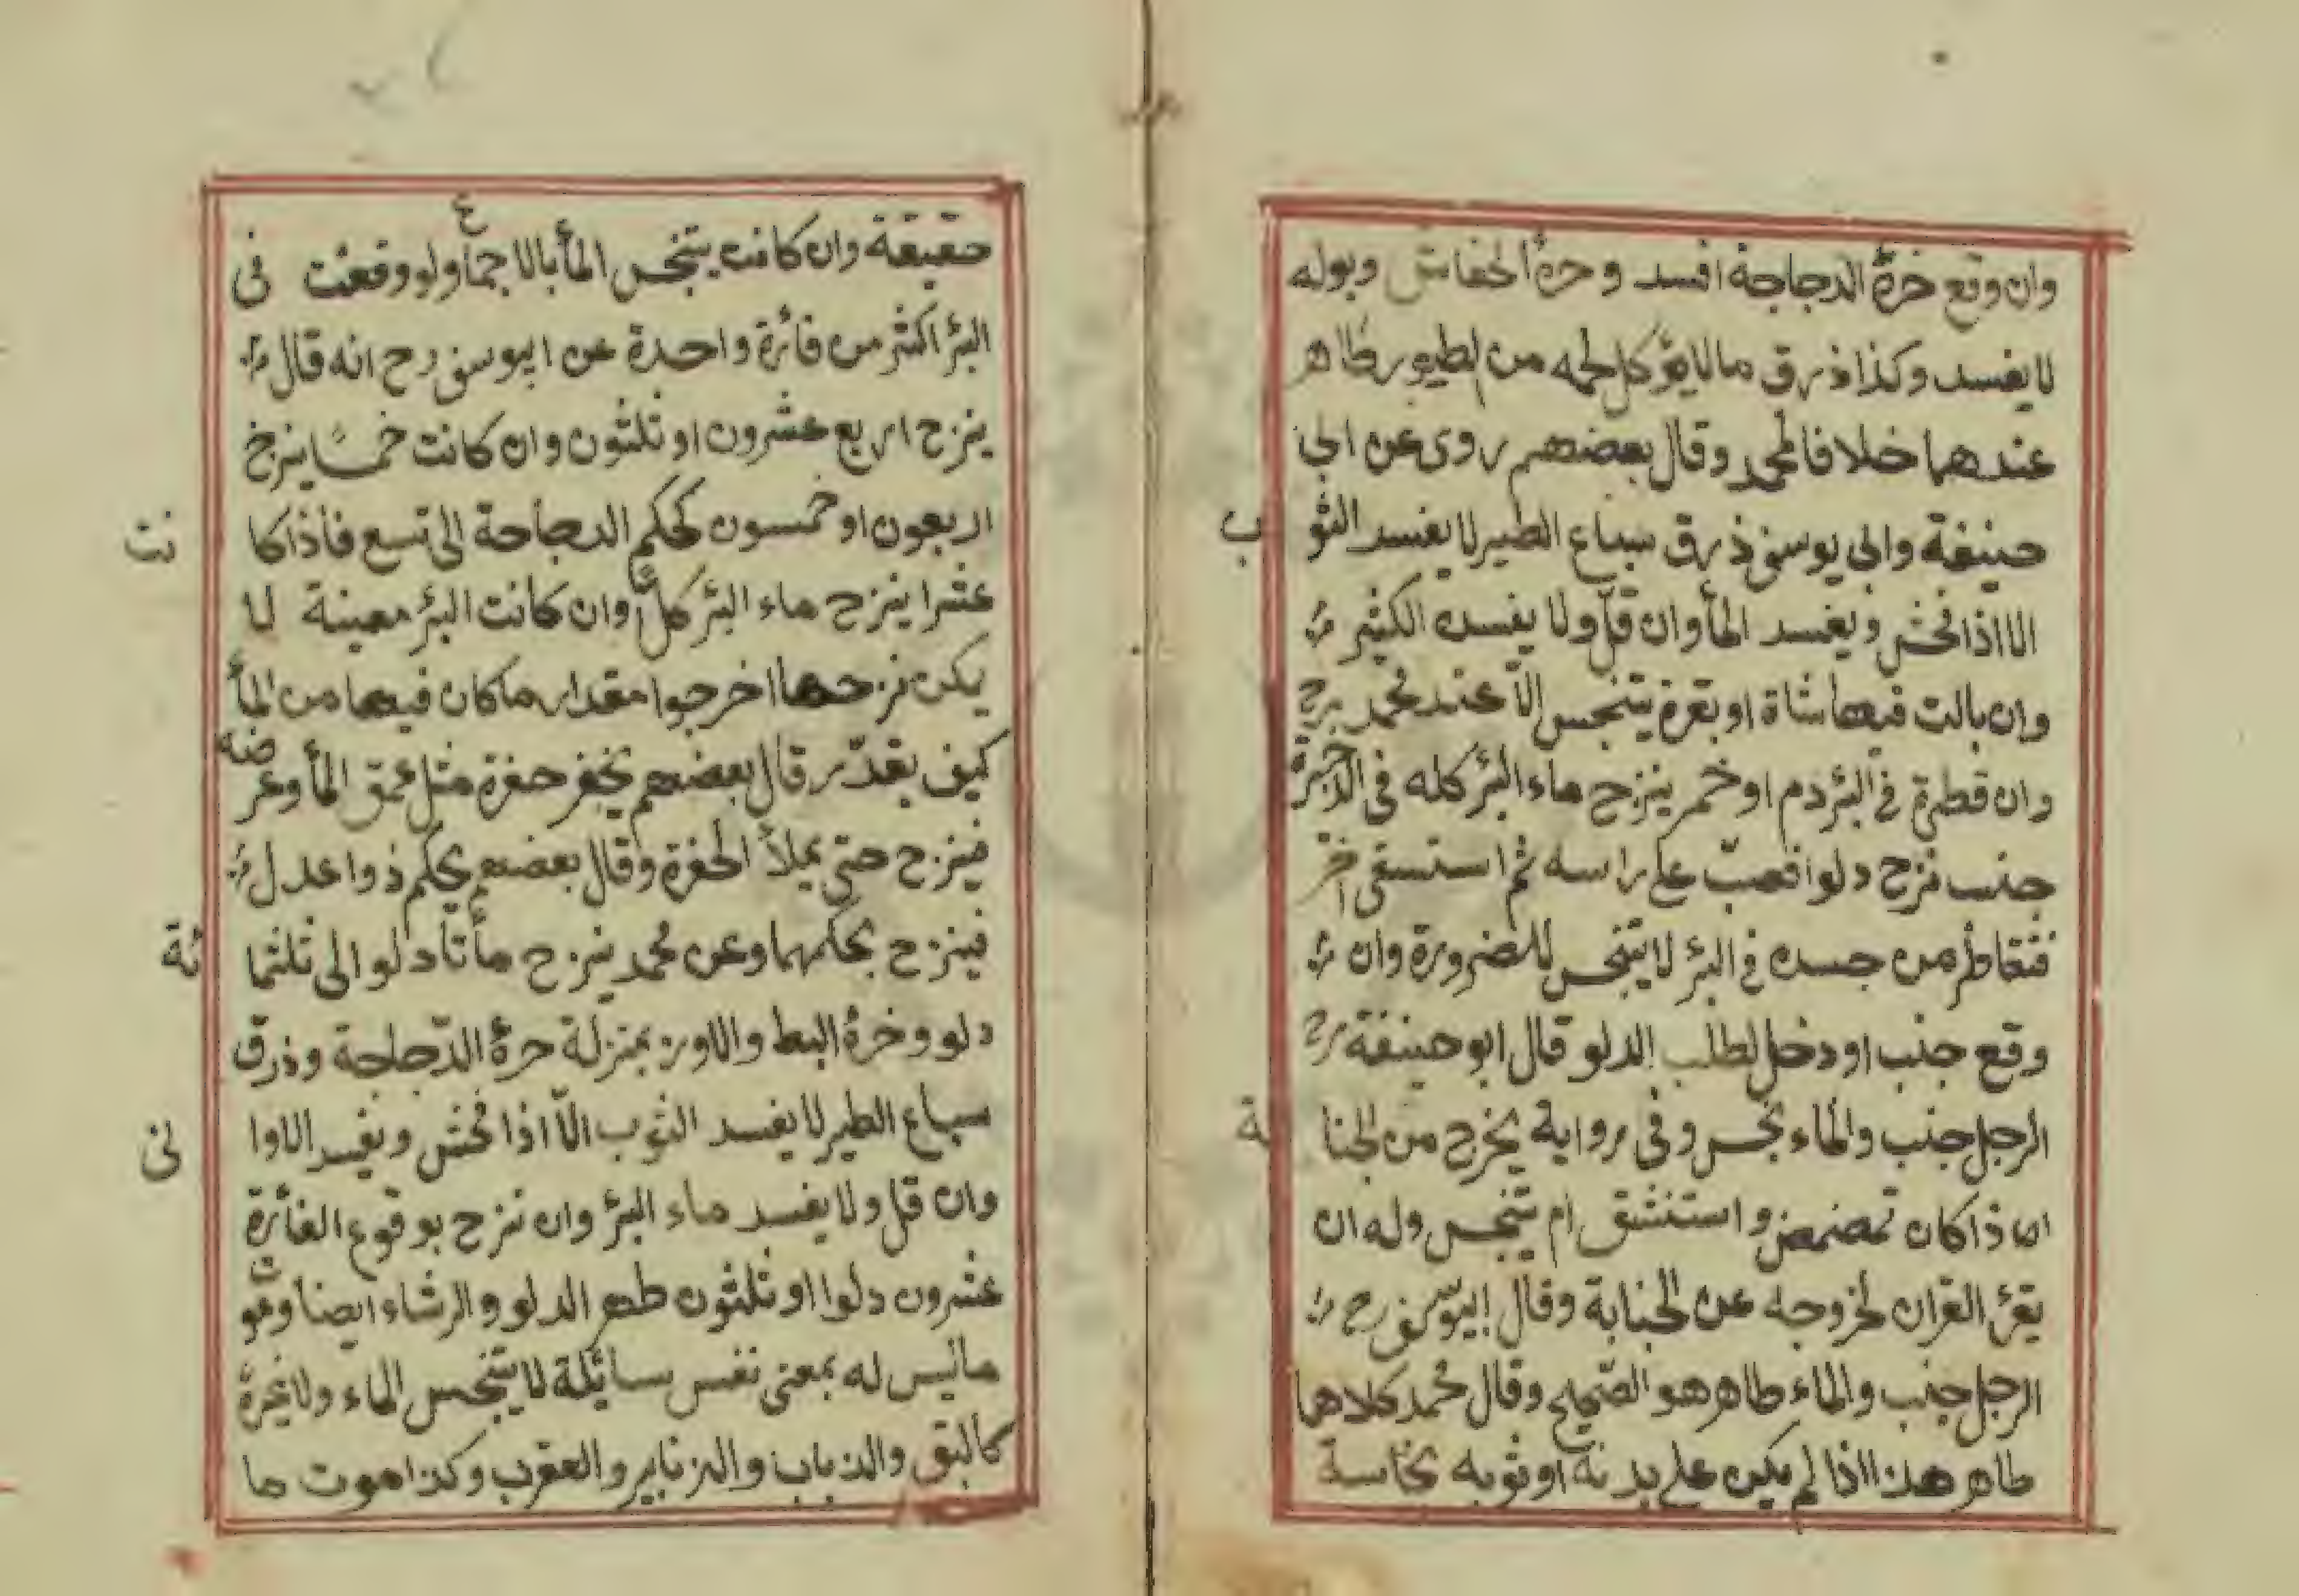 وان وقع خرۀ الدجاجة افسد وخرۀ الخفاش وبوله
لا يفسد وكذا ذرق ما لا يؤكل لحمه من الطيور طاهر
عندهما خلافا لمحمد وقال بعضهم روى عن ابى
حنيفة وابى يوسف ذرق سباع الطير لا يفسد الثوب
الا اذا فحش ويفسد المأ وان قلّ ولا يفسده الكثير
وان بالت فيها شاة او بقرة يتنجس الّا عند محمد رح
وان قطرة فى البئر دم او خمر ينزح ماء البئر كله فى
جنب نزح دلوا فصبّ على راسه ثم استسقى اخر
فتقاطر من جسده فى البئر لا يتنجس للضرورة وان
وقع جنب او دخل لطلب الدلو قال ابو حنيفة رح
الرجل جنب والماء نجس وفى رواية يخرج من الجنابة
اما ذا كان تمضمض واستنشق ام يتنجس وله ان
يقرئ القران لخروجه عن الجنابة وقال ابيوسف رح
الرجل جنب والماء طاهر هو الصّحيح وقال محمد كلاهما
طاهر هذا اذا لم يكن على بدنه او ثوبه نجاسة
حقيقة وان كانت يتنجس المأ بالاجماع ولو وقعت فى
البئر اكثر من فائرة واحدة عن ابيوسف رح انه قال
ينزح اربع عشرون او ثلثون وان كانت خمسًا ينزح
اربعون او خمسون كحكم الدجاجة الى تسع فاذا كانت
عشرا ينزح ماء البئر كلًّا وان كانت البئر معينة لا
يكن نزحها اخرجوا مقدار ما كان فيها من المأ
كيف يقدّر قال بعضهم يحفر حفرة مثل عمق المأ وعرضه
فينزح حتى يملأ الحفرة وقال بعضهم يحكم ذوا عدل
فينزح بحكمهما وعن محمد ينزح مأتا دلو الى ثلثمائة
دلو وخرۀ البط والاوز بمنزلة خرۀ الدّجاجة وذرق
سباع الطير لا يفسد الثوب الّا اذا فحش ويفسد الاوانى
وان قل ولا يفسد ماء البئر وان نزح بوقوع الفأرة
عشرون دلوا او ثلثون طهر الدلو والرشاء ايضا وموت
ماليس له بمعنى نفس سائلة لا يتنجس الماء ولا غيرة
كالبق والذباب والزنابير والعقرب وكذا موت ما